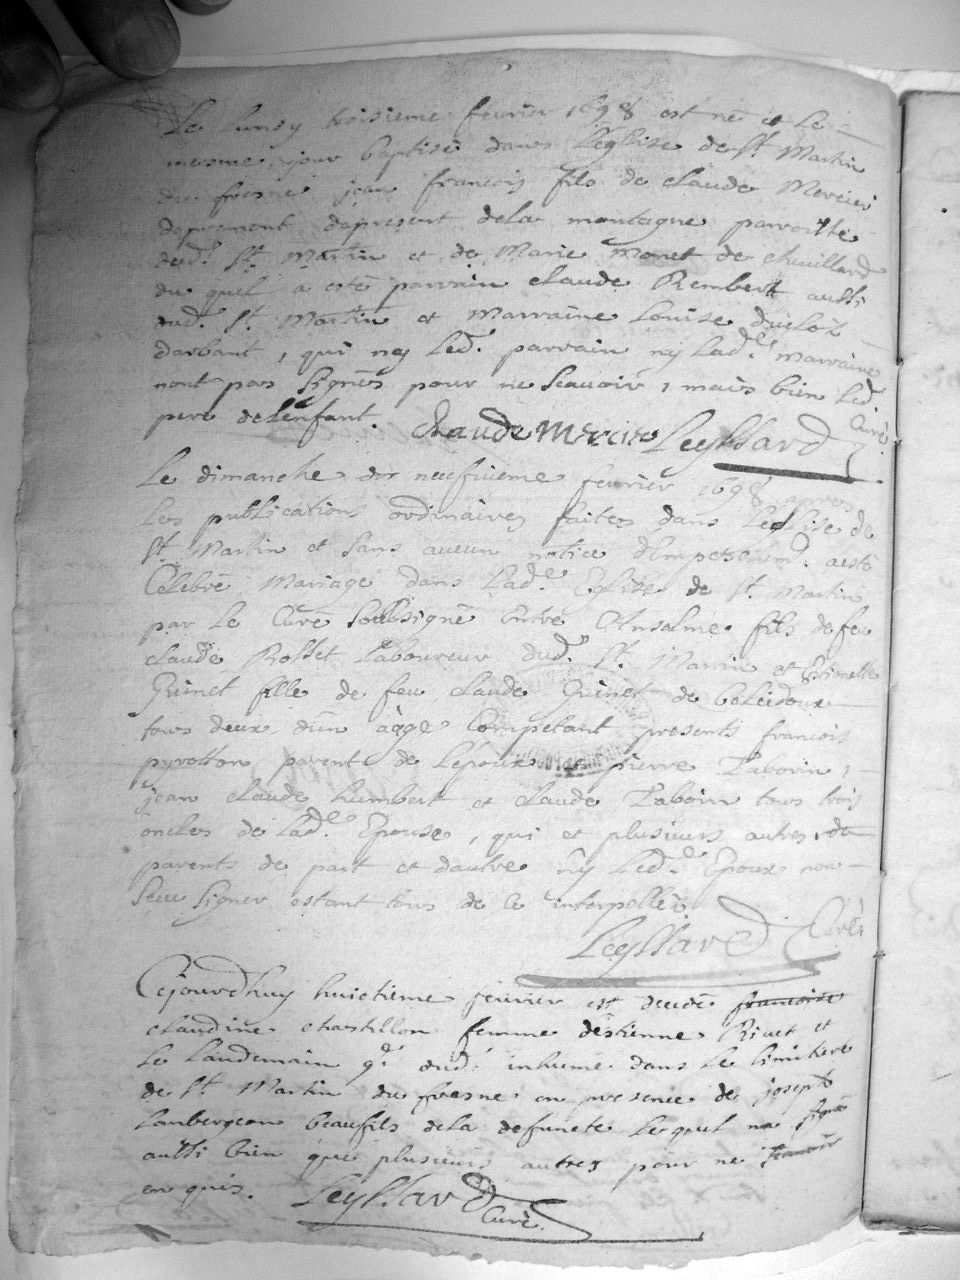 Le Lundy troisieme fevrier 1698 est né et Le
mesme jour baptisé dans L'eglise de St. Martin
du fresne jean francois fils de claude Mercier
dapremont dapresent dela montagne parroisse
dud. St. Martin et de Marie Monet de Chevillard
du quel a esté parrain claude Rembert aussi
dud. St. Martin et Marraine Louise ducloz
darbant, qui ny Led. parrain ny Lad.e marraine
nont pas signés pour ne scavoir, mais bien Led.
pere delenfant. Claude Mercier Leyssard Curé.
Le dimanche neufvieme fevrier 1698 apres
Les publications ordinaires faites dans Leglise de
St. Martin et sans aucun notice dEmpeschem. a esté
Celebré Mariage dans Lad.e Eglise de St. Martin
par Le Curé soubsigné Entre Anselme fils de feu
claude Rosset Laboureur dud. St. Martin et
Guinet fille de feu claude Guinet de
tous deux d'un aage Competant presents francois
pyrotton parent de L'epoux pierre Tabouin,
jean claude humbert et claude Tabouin tous trois
oncles de Lad.e Epouse, qui et plusieurs autres
parents de part et dautre ny Led.e Epoux non
sceu signer estant tous de ce interpellés
Leyssard Curé
Cejourdhuy huictieme fevrier est decedé francoise
claudine chastillon femme destienne Rivet et
Le Landemain 9e dud. inhumé dans Le Cimitiere
de St. Martin du fresne en presence de joseph
Laubergeon beaufils dela defuncte Lequel na signé
aussi bien que plusieurs autres pour ne scavoir
enquis. Leyssard Curé.